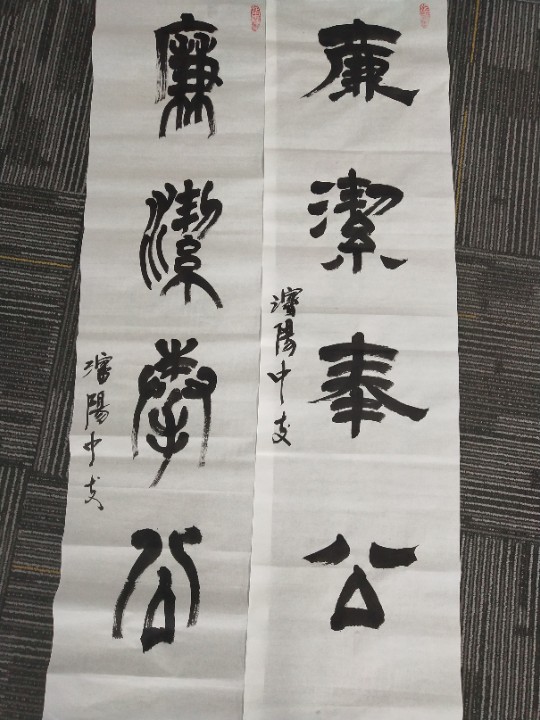 廉潔奉公
瀋陽中支
廉潔奉公
瀋陽中支